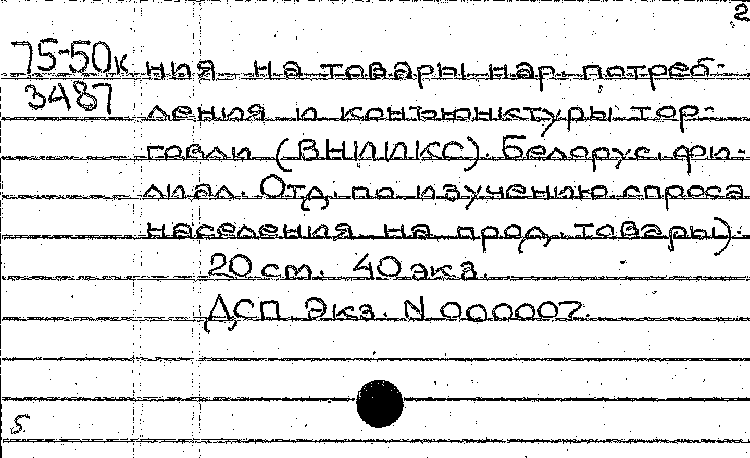 2
75-50к ния на товары нар. потреб-
3487 ления и конъюнктуры тор-
говли (ВНИИКС). Белорус. фи-
лиал. Отд. по изучению спроса
населения на прод. товары).
20 см. 40 экз.
ДСП Экз. N 000007.
5